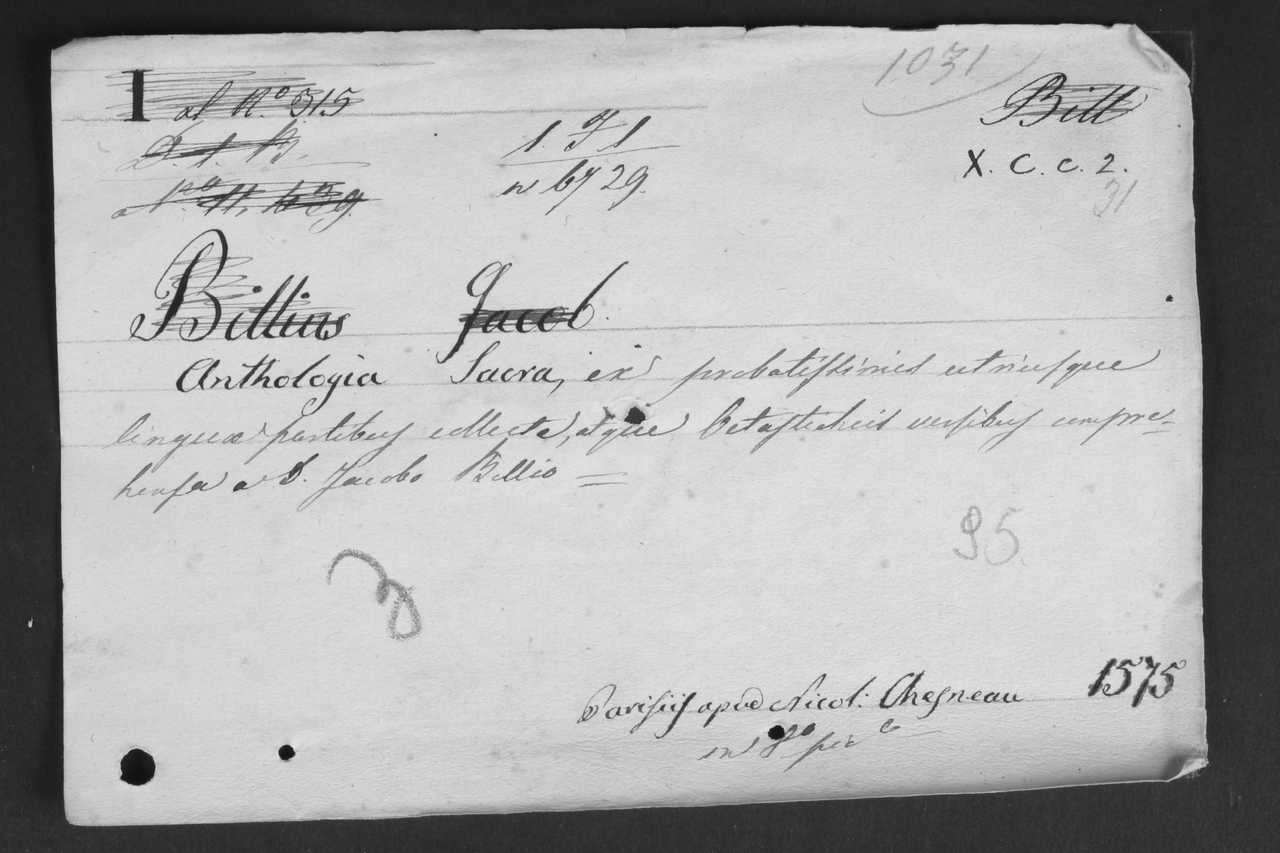 1031
I al N.º 315
Bill
1. J 1
n 6729.
X. C. c. 2.
31
Billius Jacob.
Anthologia Sacra, ex probatissimis utriusque
linguæ partibus collecta, atque Octastichis versibus compre-
hensa a D. Jacobo Billio =
95.
Parisiis apud Nicol: Chesneau 1575
in 8º